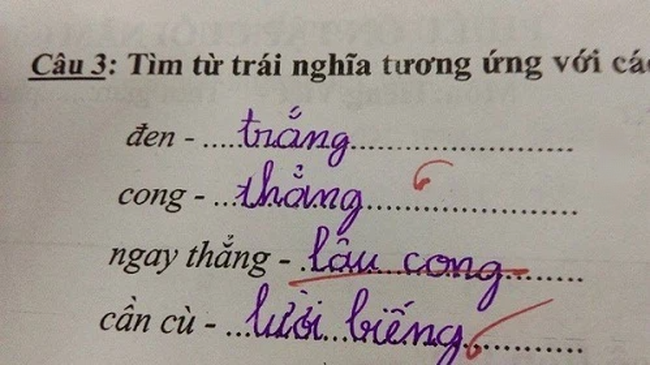 Câu 3: Tìm từ trái nghĩa tương ứng với các
đen - ....trắng..............................
cong - ...thẳng..............................
ngay thẳng - .lâu cong........
cần cù - ...lười biếng...............